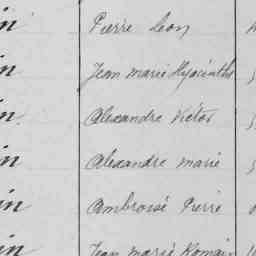 in Pierre Léon
in Jean marie Hyacinthe
in Alexandre Victor
in Alexandre marie
in Ambroise Pierre
in Jean marie Romain